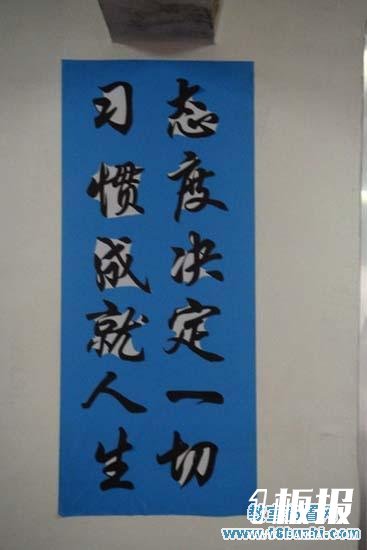 态度决定一切
习惯成就人生
板报